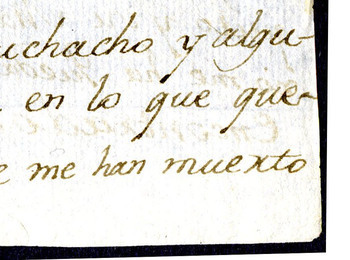 uchacho y algu-
en lo que que-
e me han muerto